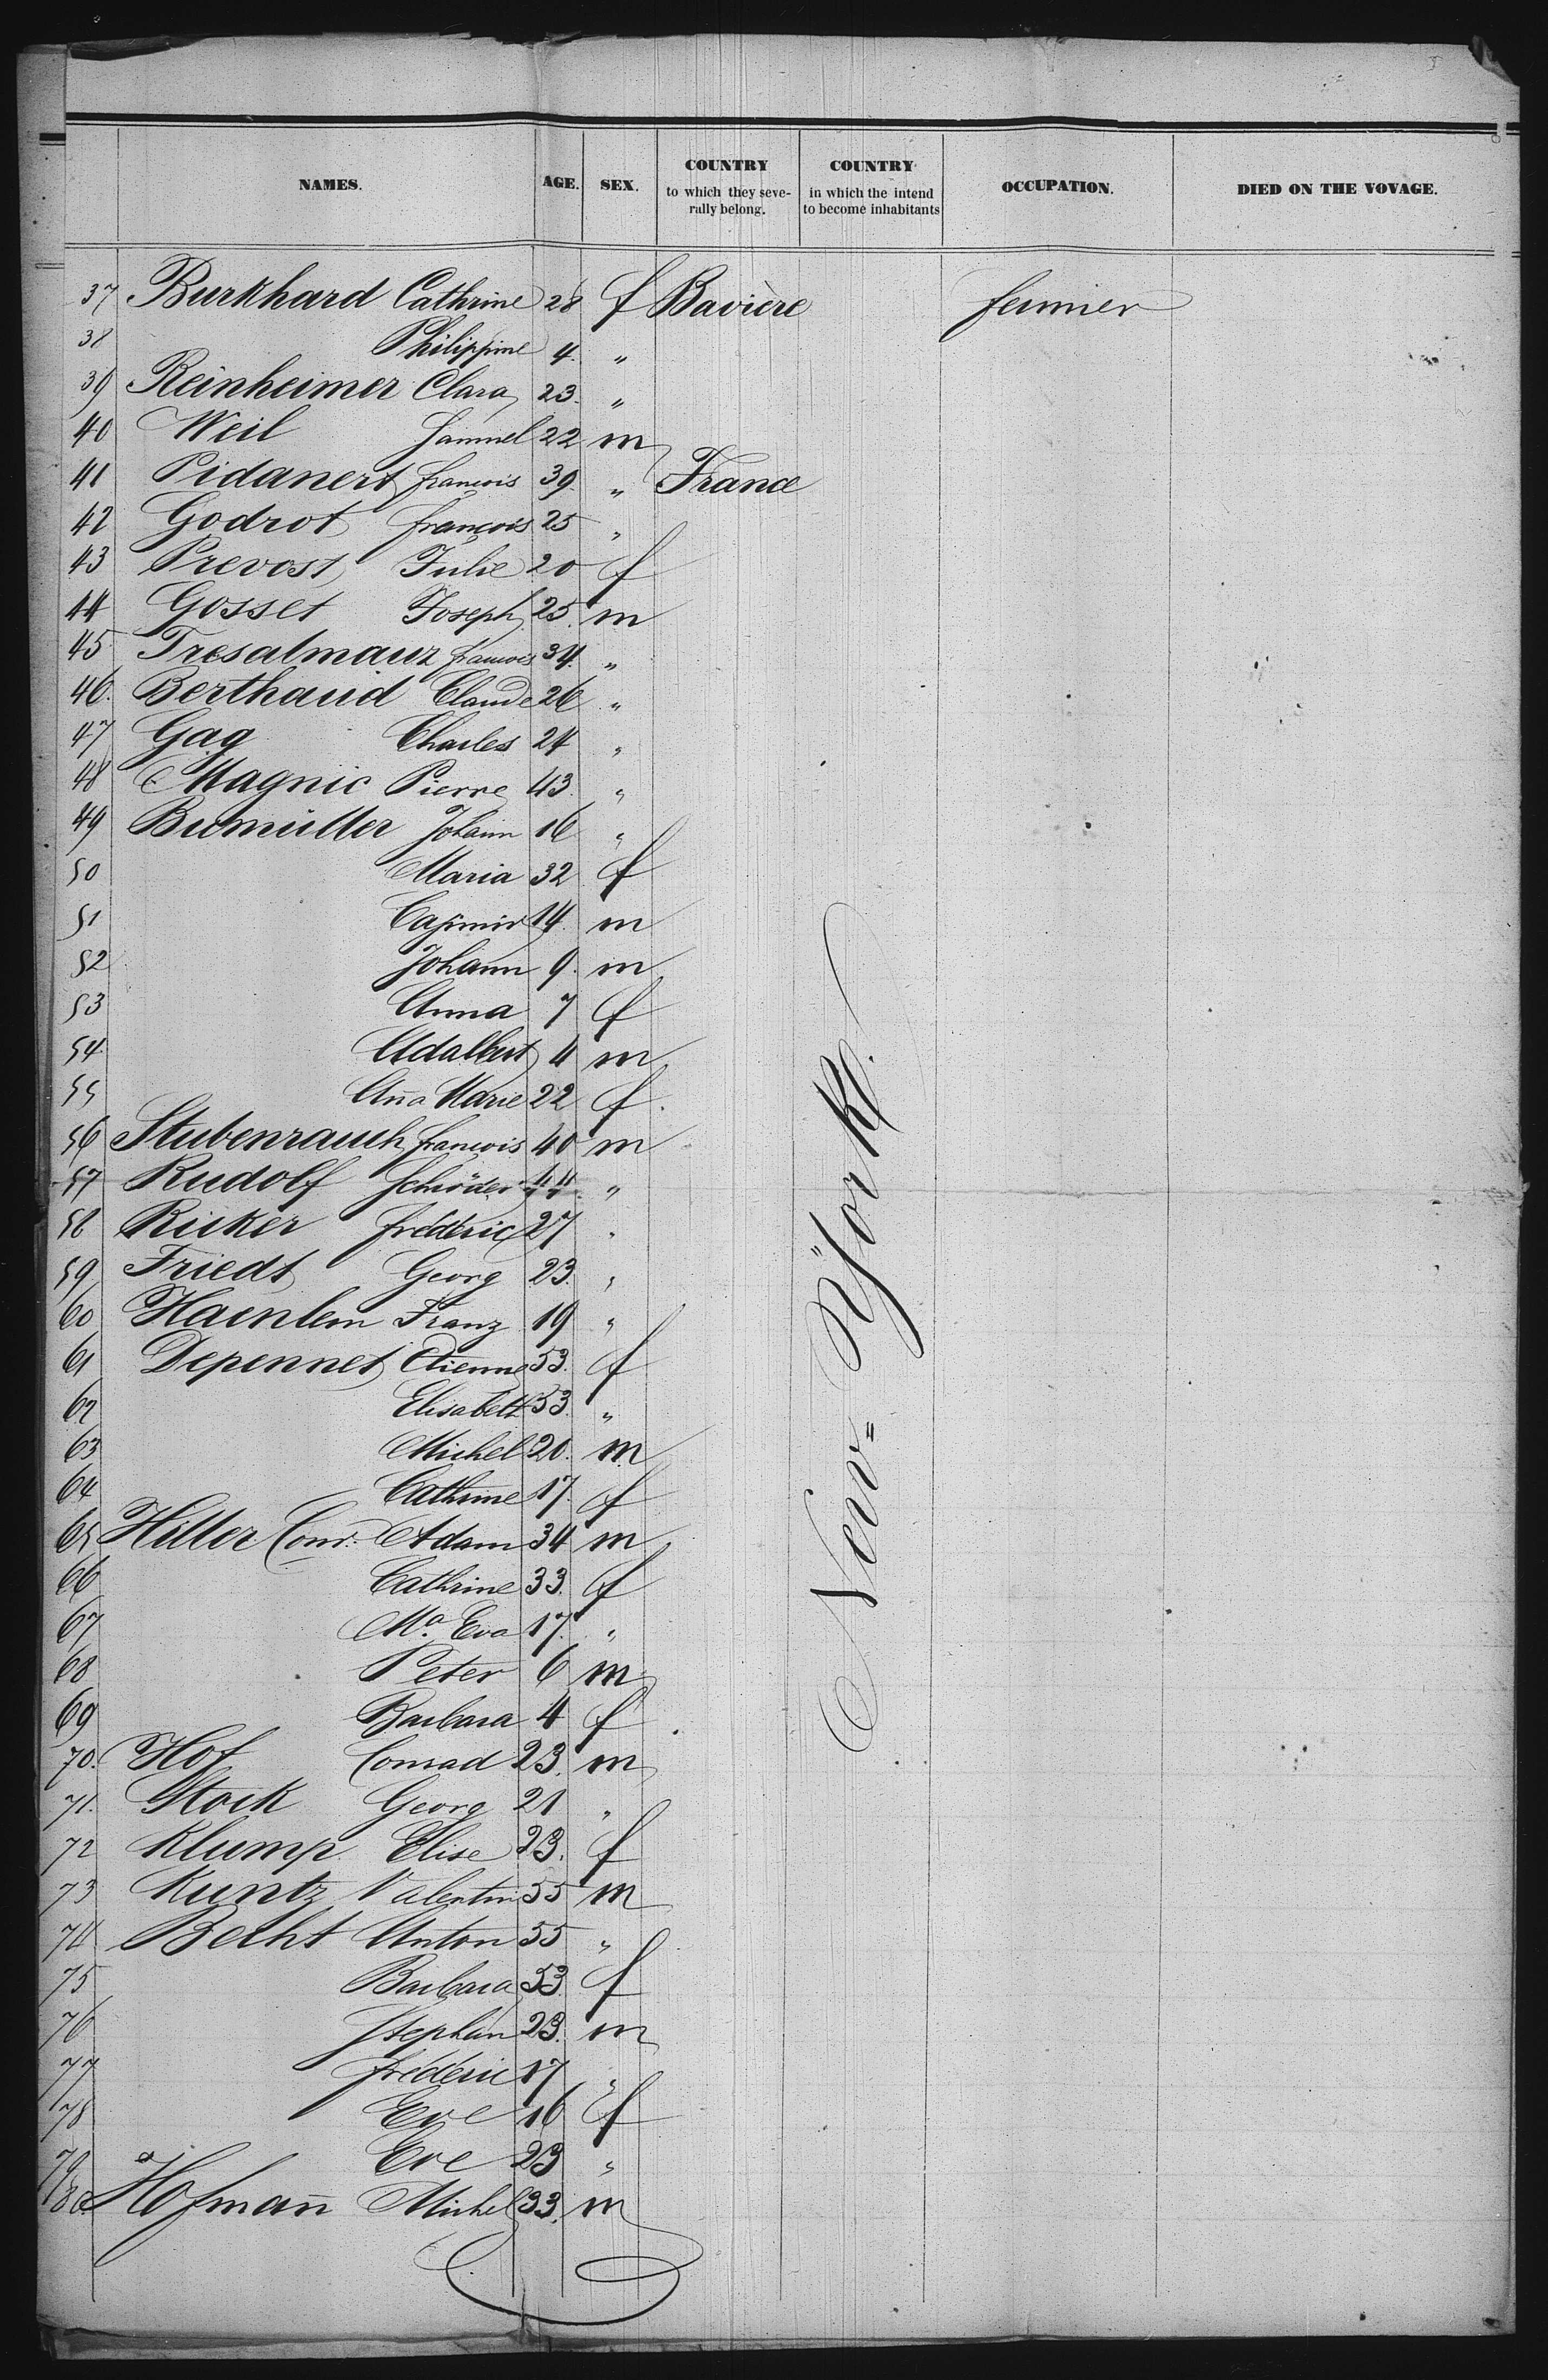 NAMES. AGE. SEX. COUNTRY to which they seve- rally belong. COUNTRY in which the intend to become inhabitants OCCUPATION. DIED ON THE VOVAGE.
37 Burkhard Cathrine 28 f Bavière fermier
38 Philippine 4. "
39 Reinheimer Clara 23. "
40 Weil Samuel 22 m
41 Pidanert francois 39. " France
42 Godrot francois 25 "
43 Prevost Julie 20 f
44 Gosset Joseph 25. m
45 Tresalmauz francois 34. "
46. Berthaud Claude 26 "
47 Gag Charles 24 "
48 Magnic Pierre 43. "
49 Bumüller Johann 16 "
50 Maria 32 f
51 Casimir 14. m
52 Johann 9. m
53 Anna 7 f
54 Adalbert 4 m
55 Ana Marie 22 f.
56 Stubenrauch francois 40 m
57 Rudolf Schröder 44. "
58 Ricker fréderic 27 "
59 Friedt Georg 23. "
60 Haenlem Franz 19 "
61 Depennet Etienne 53. f
62 Elisabeth 53. "
63 Michel 20. m
64 Cathrine 17. f
65 Hiller Conr. Adam 34 m
66 Cathrine 33. f
67 Ma. Eva 17. "
68 Peter 6 m
69 Barbara 4 f
70. Hof Conrad 23. m
71. Stock Georg 21 "
72 Klump Elise 23. f
73 Kuntz Valentin 55 m
74 Becht Anton 55 "
75 Barbara 53 f
76 Stephan 23. m
77 fréderic 17 "
78 Eve 16 f
79 Eve 23 "
80. Hofmañ Michel 33. m
New=York.